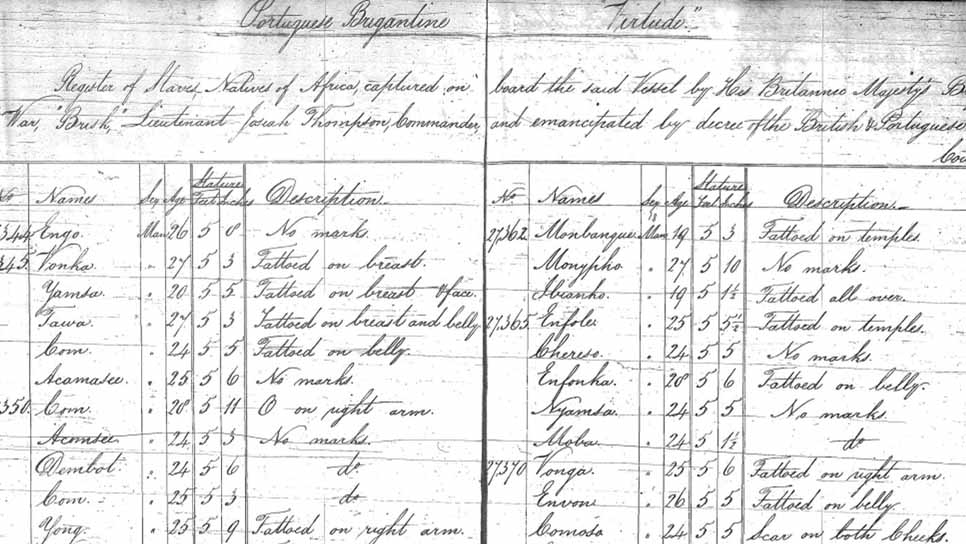 Portuguese Brigantine Virtude."
Register of Slaves Natives of Africa, captured on board the said Vessel by His Britannic Majesty's
War, "Brisk," Lieutenant Josiah Thompson, Commander, and emancipated by decree of the British & Portuguese
No Names Sex Age Stature Feet Inches Description. No Names Sex Age Stature Feet Inches Description.
344 Engo. Man 26 5 0 No marks. 27,362 Monbanque Man 19 5 3 Tattoed on temples.
345 Vonka. " 27 5 3 Tattoed on breast. Monypho " 27 5 10 No marks.
Yamsa. " 20 5 5 Tattoed on breast & face. " 19 5 1½ Tattoed all over.
Tawa. " 27 5 3 Tattoed on breast and belly 27,365 Enfole " 25 5 5½ Tattoed on temples.
Com. " 24 5 5 Tattoed on belly. Chereso. " 24 5 5 No marks.
Acamasee. " 25 5 6 No marks. Enfonka. " 28 5 6 Tattoed on belly.
350 Com. " 28 5 11 O on right arm. Nyamsa. " 24 5 5 No marks.
" 24 5 3 No marks. Moba. " 24 5 1½ do
Dembot. " 24 5 6 do 27,370 Vonga. " 25 5 6 Tattoed on right arm.
Com. " 25 5 3 do Envon " 26 5 5 Tattoed on belly.
Yong. " 25 5 9 Tattoed on right arm. Comosa " 24 5 5 Scar on both Cheeks.